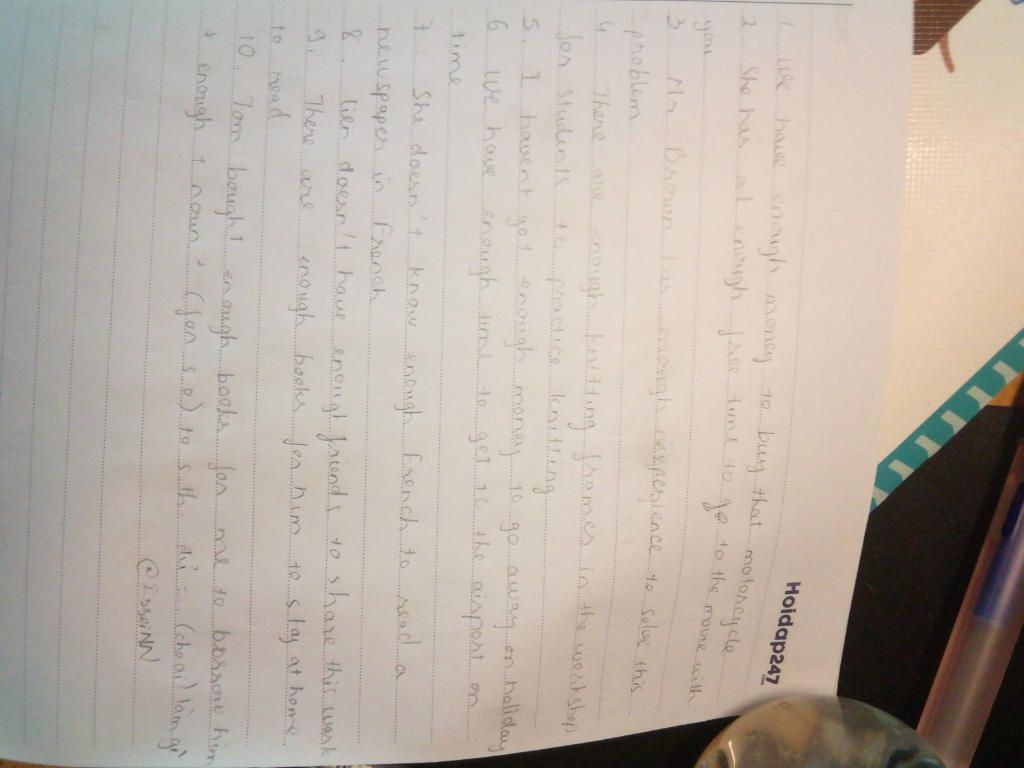 Hoidap247
1 We have enough money to buy that motorcycle
2 She has at enough free time to go to the movie with
you
3 Mr. Brown has enough experience to solve this
problem
4. There are enough knitting frames in the workshop
for students to practice knitting
5. I haven't got enough money to go away on holiday
6 We have enough time to get to the airport on
time
7 She doesn't know enough French to read a
newspaper in French
8. Lien doesn't have enough friends to share this work
9. There are enough books for him to stay at home
to read
10. Tom bought enough books for me to borrow him
+ enough + noun + (for s.o) to s.th đủ ... (cho ai) làm gì